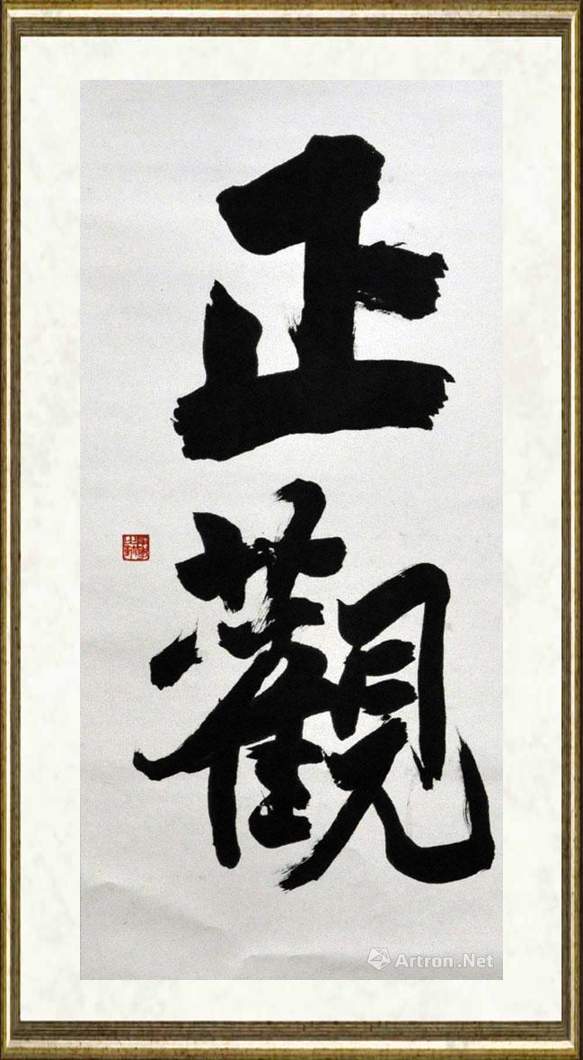 正觀
Artron.Net